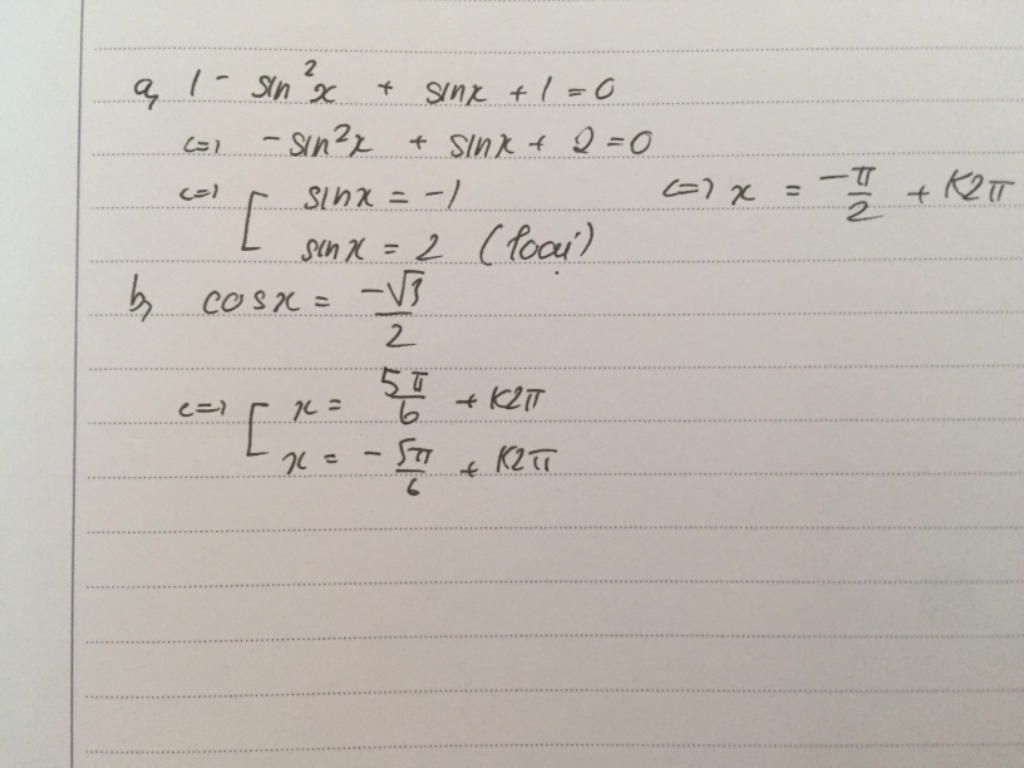 a, 1 - sin²x + sinx + 1 = 0
<=> -sin²x + sinx + 2 = 0
<=> [ sinx = -1 <=> x = -π/2 + K2π
sinx = 2 (loại)
b, cosx = -√3/2
<=> [ x = 5π/6 + K2π
x = -5π/6 + K2π